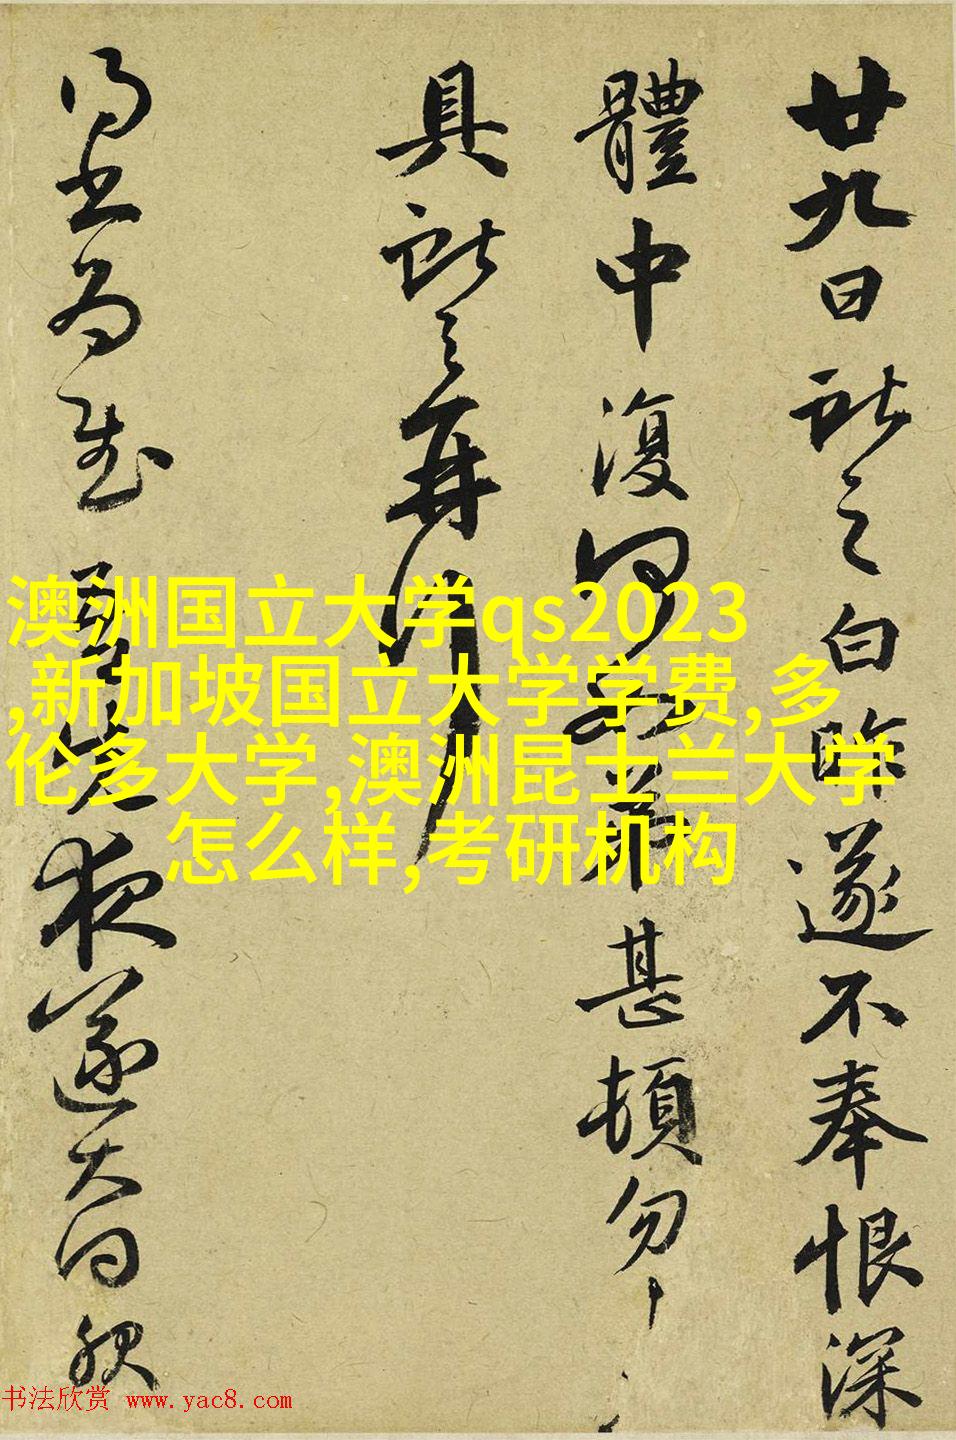 廿九日獻之白昨遂不奉恨深
體中復何如弟甚頓勿
具獻之再拜
為慰
夜遂大
澳洲国立大学qs2023
,新加坡国立大学学费,多
伦多大学,澳洲昆士兰大学
怎么样,考研机构
书法欣赏 www.yac8.com